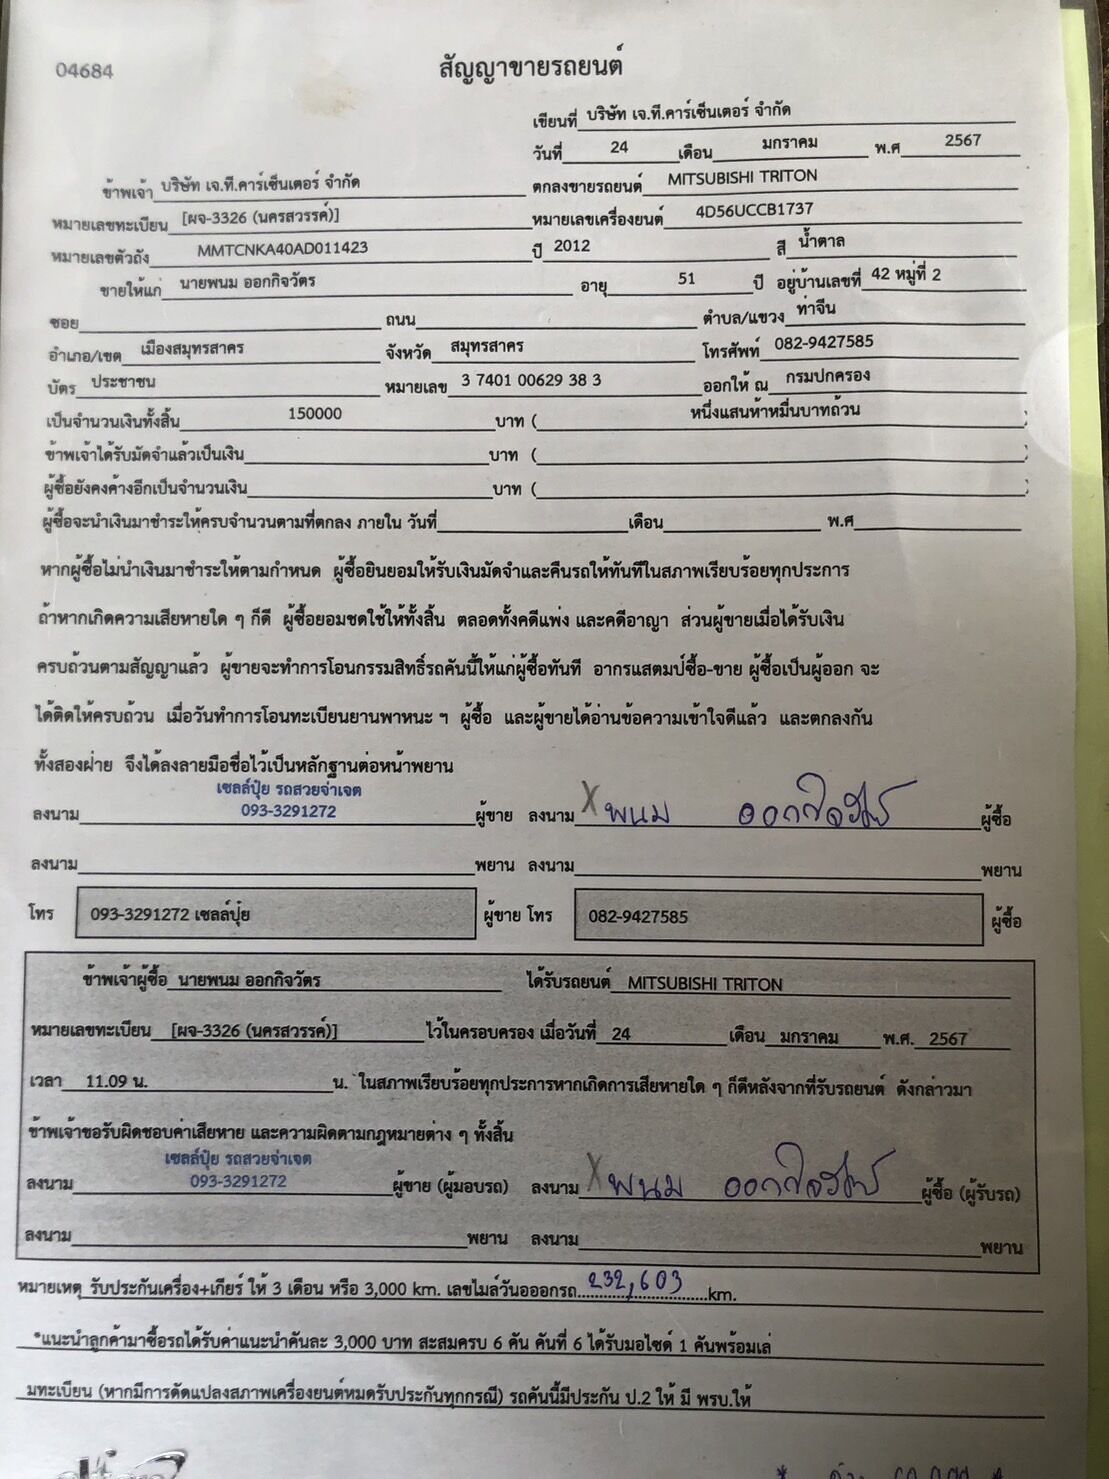 04684
สัญญาขายรถยนต์
เขียนที่ บริษัท เจ.ที.คาร์เซ็นเตอร์ จำกัด
วันที่ 24 เดือน มกราคม พ.ศ 2567
ข้าพเจ้า บริษัท เจ.ที.คาร์เซ็นเตอร์ จำกัด ตกลงขายรถยนต์ MITSUBISHI TRITON
หมายเลขทะเบียน [ผจ-3326 (นครสวรรค์)] หมายเลขเครื่องยนต์ 4D56UCCB1737
หมายเลขตัวถัง MMTCNKA40AD011423 ปี 2012 สี น้ำตาล
ขายให้แก่ นายพนม ออกกิจวัตร อายุ 51 ปี อยู่บ้านเลขที่ 42 หมู่ที่ 2
ซอย ถนน ตำบล/แขวง ท่าจีน
อำเภอ/เขต เมืองสมุทรสาคร จังหวัด สมุทรสาคร โทรศัพท์ 082-9427585
บัตร ประชาชน หมายเลข 3 7401 00629 38 3 ออกให้ ณ กรมปกครอง
เป็นจำนวนเงินทั้งสิ้น 150000 บาท ( หนึ่งแสนห้าหมื่นบาทถ้วน )
ข้าพเจ้าได้รับมัดจำแล้วเป็นเงิน บาท ( )
ผู้ซื้อยังคงค้างอีกเป็นจำนวนเงิน บาท ( )
ผู้ซื้อจะนำเงินมาชำระให้ครบจำนวนตามที่ตกลง ภายใน วันที่ เดือน พ.ศ
หากผู้ซื้อไม่นำเงินมาชำระให้ตามกำหนด ผู้ซื้อยินยอมให้รับเงินมัดจำและคืนรถให้ทันทีในสภาพเรียบร้อยทุกประการ
ถ้าหากเกิดความเสียหายใด ๆ ก็ดี ผู้ซื้อยอมชดใช้ให้ทั้งสิ้น ตลอดทั้งคดีแพ่ง และคดีอาญา ส่วนผู้ขายเมื่อได้รับเงิน
ครบถ้วนตามสัญญาแล้ว ผู้ขายจะทำการโอนกรรมสิทธิ์รถคันนี้ให้แก่ผู้ซื้อทันที อากรแสตมป์ซื้อ-ขาย ผู้ซื้อเป็นผู้ออก จะ
ได้ติดให้ครบถ้วน เมื่อวันทำการโอนทะเบียนยานพาหนะ ฯ ผู้ซื้อ และผู้ขายได้อ่านข้อความเข้าใจดีแล้ว และตกลงกัน
ทั้งสองฝ่าย จึงได้ลงลายมือชื่อไว้เป็นหลักฐานต่อหน้าพยาน
เซลล์ปุ๋ย รถสวยจ่าเจต
ลงนาม 093-3291272 ผู้ขาย ลงนาม X พนม ออกกิจวัตร ผู้ซื้อ
ลงนาม พยาน ลงนาม พยาน
โทร 093-3291272 เซลล์ปุ๋ย ผู้ขาย โทร 082-9427585 ผู้ซื้อ
ข้าพเจ้าผู้ซื้อ นายพนม ออกกิจวัตร ได้รับรถยนต์ MITSUBISHI TRITON
หมายเลขทะเบียน [ผจ-3326 (นครสวรรค์)] ไว้ในครอบครอง เมื่อวันที่ 24 เดือน มกราคม พ.ศ. 2567
เวลา 11.09 น. น. ในสภาพเรียบร้อยทุกประการหากเกิดการเสียหายใด ๆ ก็ดีหลังจากที่รับรถยนต์ ดังกล่าวมา
ข้าพเจ้าขอรับผิดชอบค่าเสียหาย และความผิดตามกฎหมายต่าง ๆ ทั้งสิ้น
เซลล์ปุ๋ย รถสวยจ่าเจต
ลงนาม 093-3291272 ผู้ขาย (ผู้มอบรถ) ลงนาม X พนม ออกกิจวัตร ผู้ซื้อ (ผู้รับรถ)
ลงนาม พยาน ลงนาม พยาน
หมายเหตุ รับประกันเครื่อง+เกียร์ ให้ 3 เดือน หรือ 3,000 km. เลขไมล์วันอออกรถ 232,603 km.
*แนะนำลูกค้ามาซื้อรถได้รับค่าแนะนำคันละ 3,000 บาท สะสมครบ 6 คัน คันที่ 6 ได้รับมอไซด์ 1 คันพร้อมเล่
มทะเบียน (หากมีการดัดแปลงสภาพเครื่องยนต์หมดรับประกันทุกกรณี) รถคันนี้มีประกัน ป.2 ให้ มี พรบ.ให้